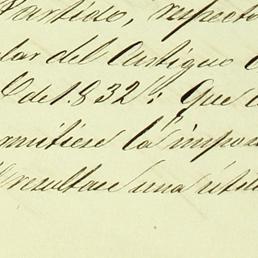 Partido, respecto
lar del Antiguo
de 1832: Que
rmitiese la impos
resultase una útil